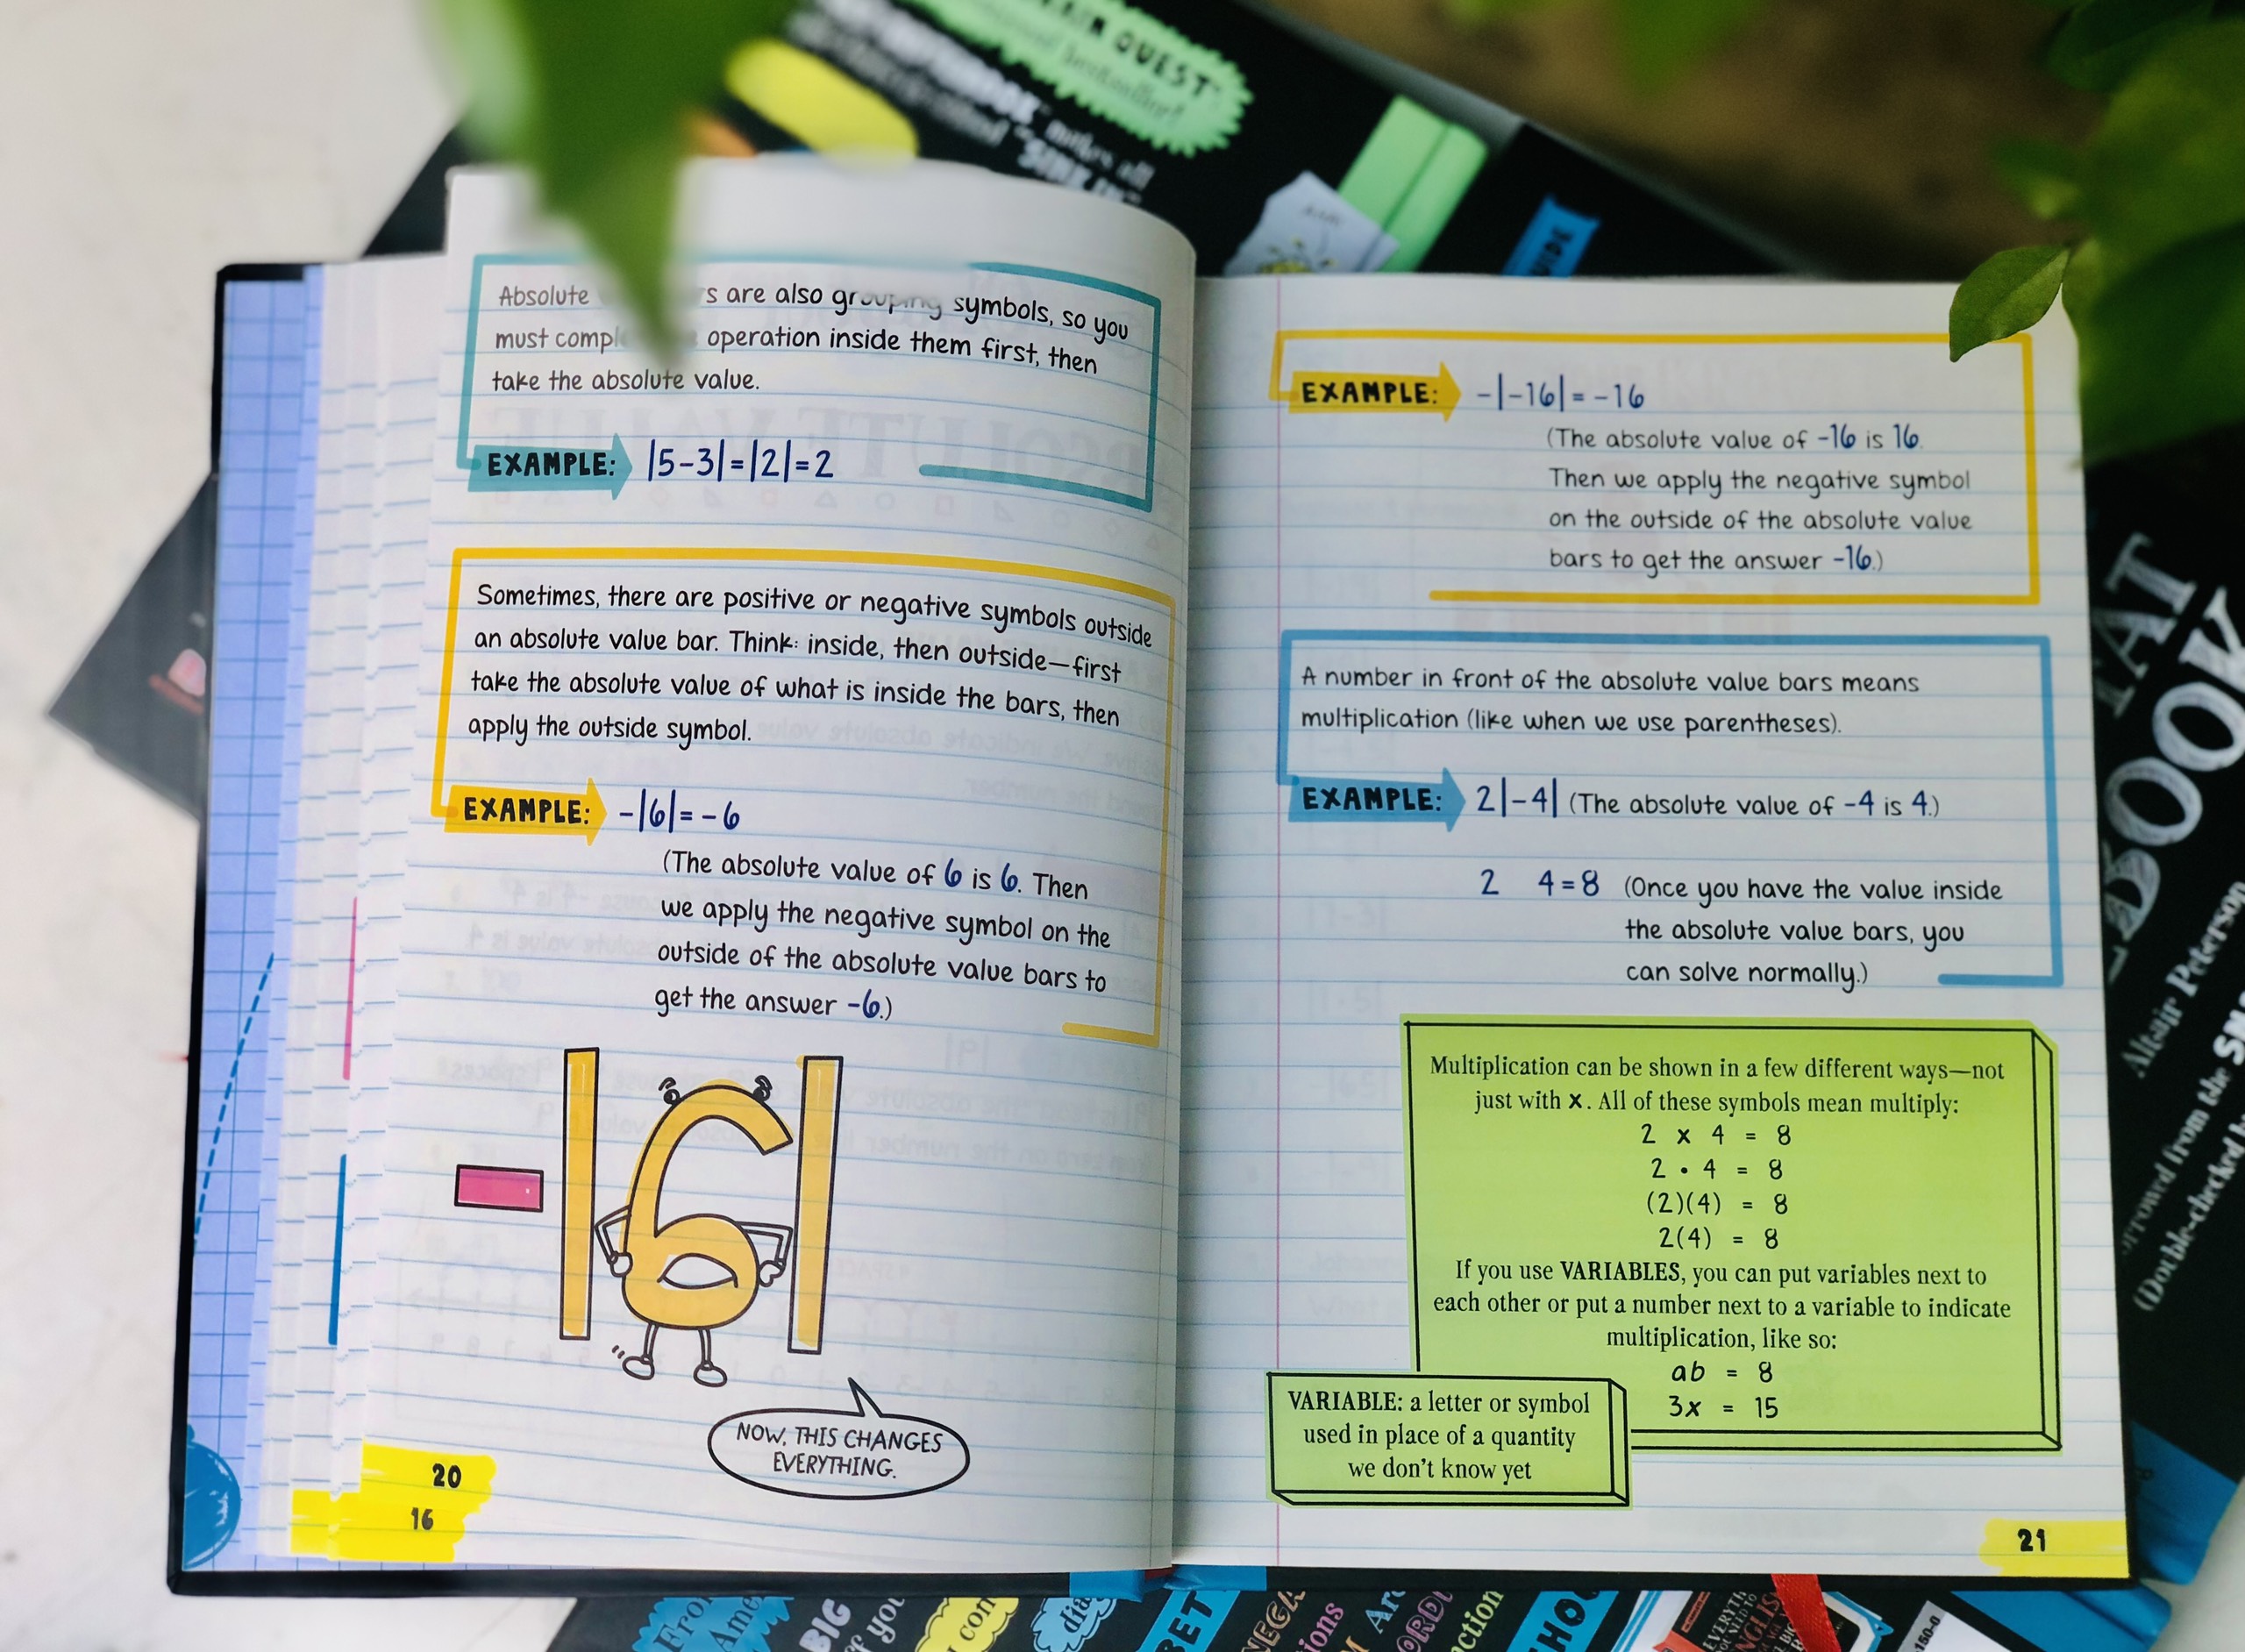 Absolute s are also grouping symbols, so you
must operation inside them first, then
take the absolute value.
EXAMPLE: |5-3|=|2|=2
Sometimes, there are positive or negative symbols outside
an absolute value bar. Think: inside, then outside—first
take the absolute value of what is inside the bars, then
apply the outside symbol.
EXAMPLE: -|6|= -6
(The absolute value of 6 is 6. Then
we apply the negative symbol on the
outside of the absolute value bars to
get the answer -6.)
-|6|
NOW, THIS CHANGES
EVERYTHING.
20
16
EXAMPLE: -|-16|= -16
(The absolute value of -16 is 16.
Then we apply the negative symbol
on the outside of the absolute value
bars to get the answer -16.)
A number in front of the absolute value bars means
multiplication (like when we use parentheses).
EXAMPLE: 2|-4| (The absolute value of -4 is 4.)
2 4=8 (Once you have the value inside
the absolute value bars, you
can solve normally.)
Multiplication can be shown in a few different ways—not
just with x. All of these symbols mean multiply:
2 x 4 = 8
2 • 4 = 8
(2)(4) = 8
2(4) = 8
If you use VARIABLES, you can put variables next to
each other or put a number next to a variable to indicate
multiplication, like so:
ab = 8
3x = 15
VARIABLE: a letter or symbol
used in place of a quantity
we don't know yet
21
QUEST
makes all
"SINK IN"
BOOK
Altair Peterson
from the
(Double-checked
BIG